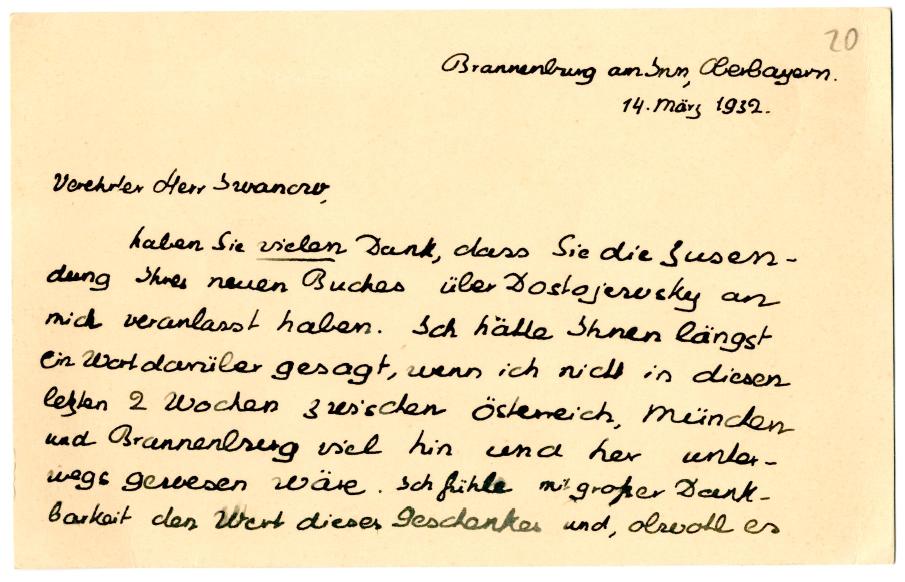 20
Brannenburg am Inn, Oberbayern.
14. März 1932.
Verehrter Herr Iwanow,
haben Sie vielen Dank, dass Sie die Zusen-
dung Ihres neuen Buches über Dostojewsky an
mich veranlasst haben. Ich hätte Ihnen längst
ein Wort darüber gesagt, wenn ich nicht in diesen
letzten 2 Wochen zwischen Österreich, München
und Brannenburg viel hin und her unter-
wegs gewesen wäre. Ich fühle mit großer Dank-
barkeit den Wert dieses Geschenkes und, obwohl es